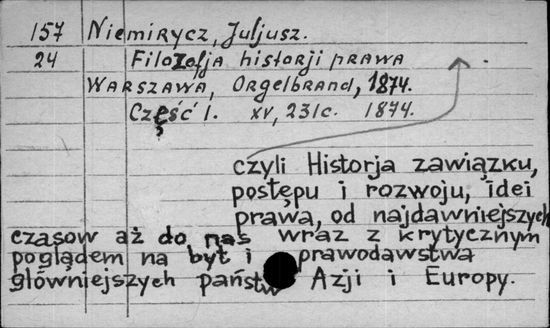 157 Niemirycz, Juljusz.
24 Filozofja historji prawa
Warszawa, Orgelbrand, 1874.
Część 1. XV, 231c. 1874.
czyli Historja zawiązku,
postępu i rozwoju, idei
prawa, od najdawniejszych
czasow aż do nas wraz z krytycznym
poglądem na byt i prawodawstwa
główniejszych państw Azji i Europy.